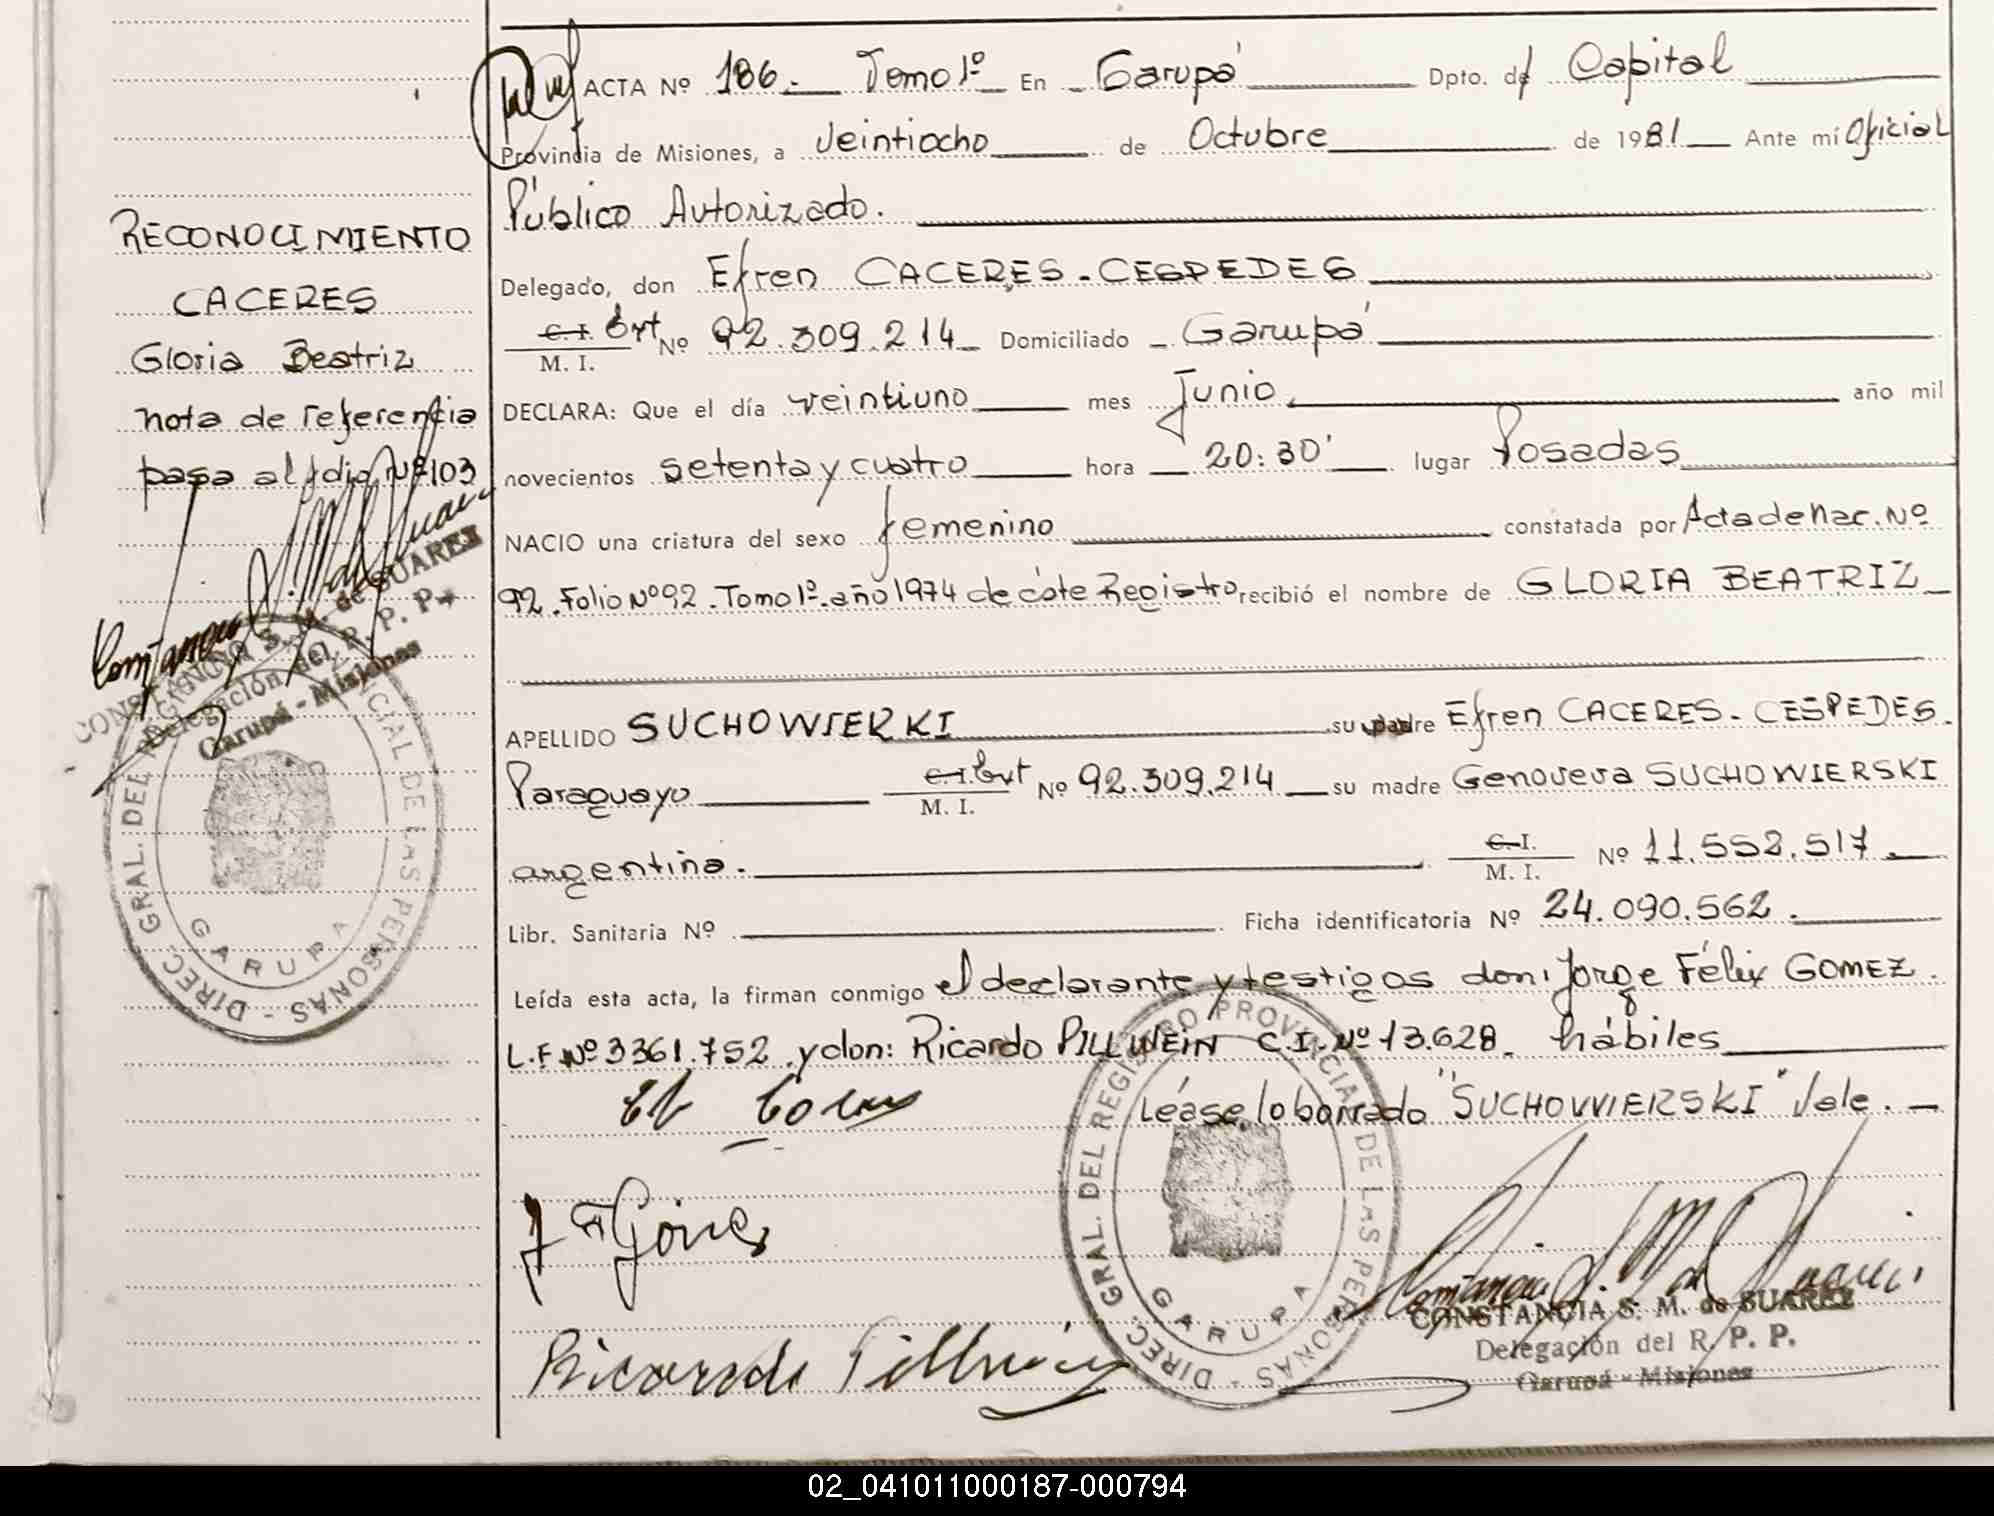 ACTA Nº 186.- Tomo 1º En Garupá Dpto. de Capital
Provincia de Misiones, a veintiocho de Octubre de 1981 Ante mí Oficial
Público Autorizado.
Delegado, don Efren CACERES-CESPEDES
C.I. Ext M. I. Nº 92.309.214 Domiciliado Garupá
DECLARA: Que el día veintiuno mes Junio año mil
novecientos setenta y cuatro hora 20:30' lugar Posadas
NACIO una criatura del sexo femenino constatada por Acta de Nac. Nº
92. Folio Nº 92. Tomo 1º. año 1974 de éste Registro recibió el nombre de GLORIA BEATRIZ
APELLIDO SUCHOWIERKI su padre Efren CACERES-CESPEDES.
Paraguayo C.I Ext M. I. Nº 92.309.214 su madre Genoveva SUCHOWIERSKI
argentina. C.I. M. I. Nº 11.552.517
Libr. Sanitaria Nº Ficha identificatoria Nº 24.090.562.
Leída esta acta, la firman conmigo el declarante y testigos don: Jorge Félix GOMEZ.
L.E. Nº 3361.752 y don: Ricardo PILLWEIN C.I. Nº 13.628. hábiles
Léase lo borrado "SUCHOWIERSKI" Vale.
Ricardo Pillwein
CONSTANCIA S. M. de SUAREZ
Delegación del R. P. P.
Garupá - Misiones
DIREC. GRAL. DEL REGISTRO PROVINCIAL DE LAS PERSONAS -
GARUPA
RECONOCIMIENTO
CACERES
Gloria Beatriz
nota de referencia
pasa al folio Nº 103
CONSTANCIA S. M. de SUAREZ
Delegación del R. P. P.
Garupá - Misiones
DIREC. GRAL. DEL REGISTRO PROVINCIAL DE LAS PERSONAS -
GARUPA
02_041011000187-000794